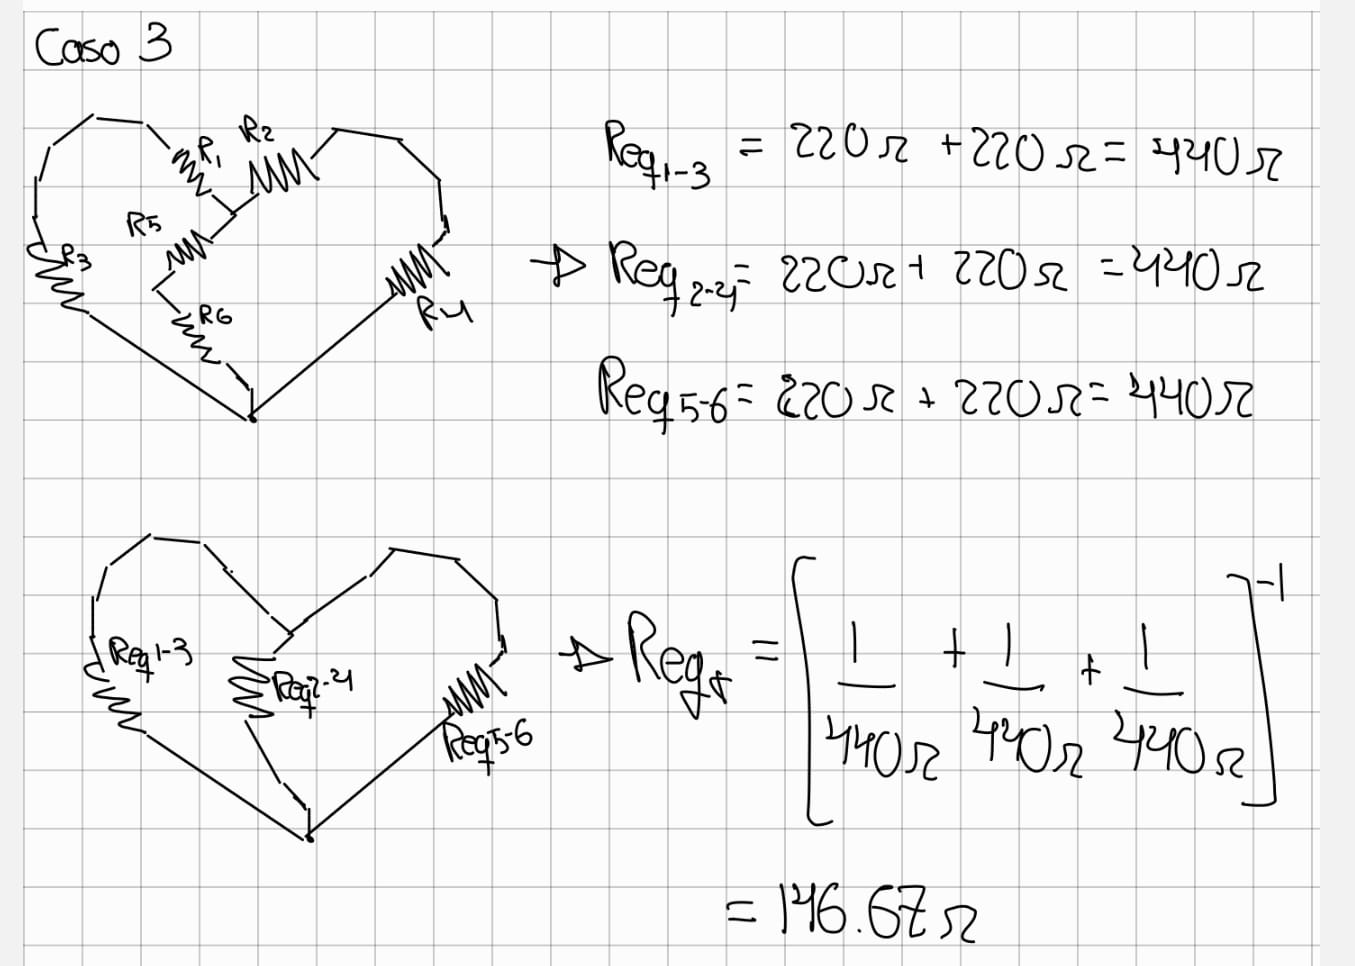 Caso 3
R1
R2
R5
R3
R6
R4
Req1-3 = 220Ω + 220Ω = 440Ω
→ Req2-4 = 220Ω + 220Ω = 440Ω
Req5-6 = 220Ω + 220Ω = 440Ω
Req1-3
Req2-4
Req5-6
→ ReqT = [1/440Ω + 1/440Ω + 1/440Ω]^-1
= 146.67Ω